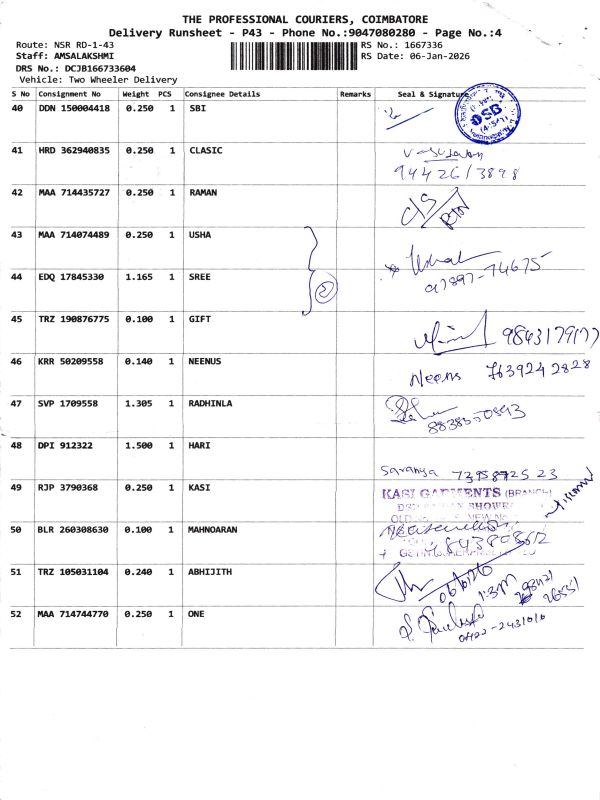 THE PROFESSIONAL COURIERS, COIMBATORE
Delivery Runsheet - P43 - Phone No.:9047080280 - Page No.:4
Route: NSR RD-1-43 RS No.: 1667336
Staff: AMSALAKSHMI RS Date: 06-Jan-2026
DRS No.: DCJB166733604
Vehicle: Two Wheeler Delivery
S No Consignment No Weight PCS Consignee Details Remarks Seal & Signature
40 DDN 150004418 0.250 1 SBI
41 HRD 362940835 0.250 1 CLASIC
9442613898
42 MAA 714435727 0.250 1 RAMAN
43 MAA 714074489 0.250 1 USHA
Usha
97897-74675
44 EDQ 17845330 1.165 1 SREE
2
45 TRZ 190876775 0.100 1 GIFT
46 KRR 50209558 0.140 1 NEENUS
Neens 7639242828
47 SVP 1709558 1.305 1 RADHINLA
48 DPI 912322 1.500 1 HARI
Saranya
49 RJP 3790368 0.250 1 KASI
KASI GARMENTS (BRANCH)
50 BLR 260308630 0.100 1 MAHNOARAN
51 TRZ 105031104 0.240 1 ABHIJITH
06/01/26
52 MAA 714744770 0.250 1 ONE
0422-2431010